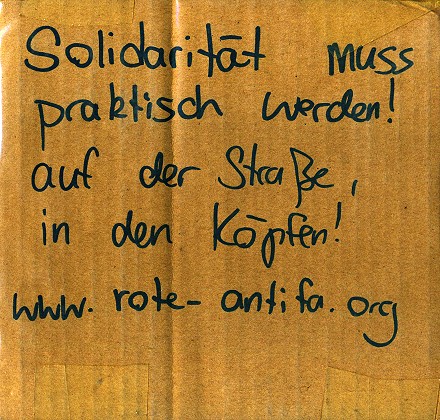 Solidarität muss
praktisch werden!
auf der Straße,
in den Köpfen!
www.rote-antifa.org